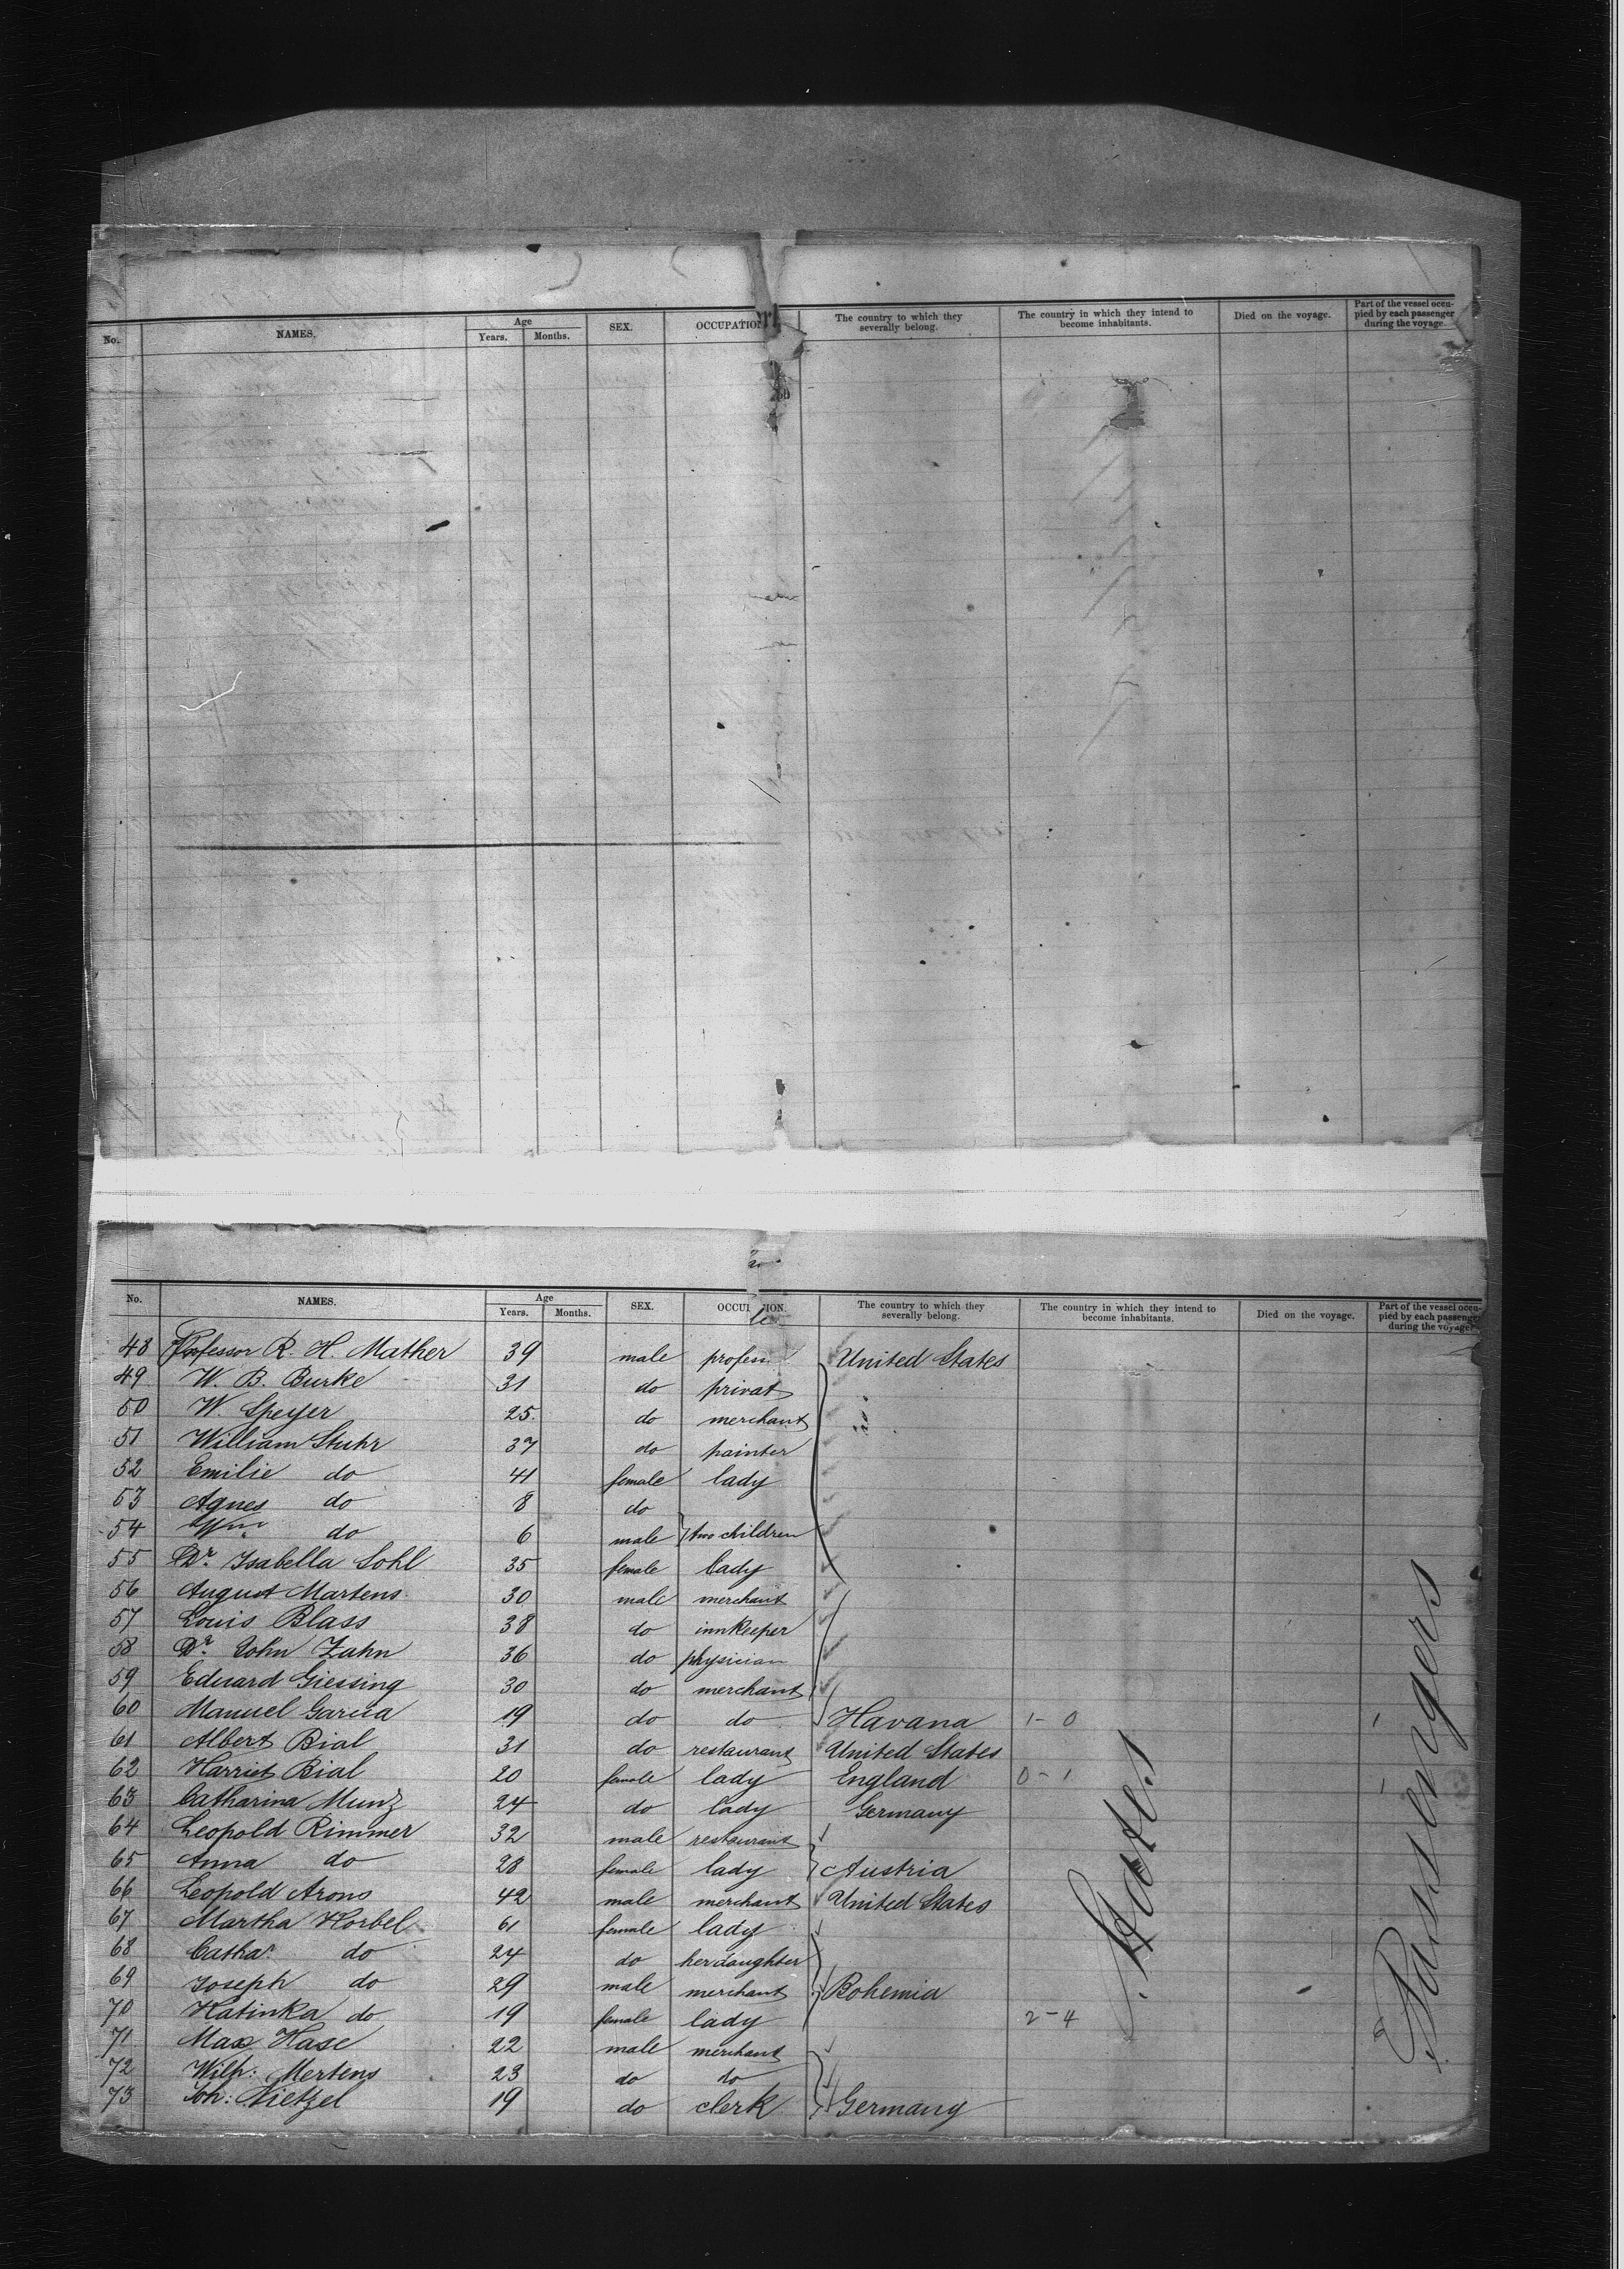 No. NAMES. Age Years. Months. SEX. OCCUPATION The country to which they severally belong. The country in which they intend to become inhabitants. Died on the voyage. Part of the vessel occupied by each passenger during the voyage
No. NAMES. Age Years. Months. SEX. OCCUPATION. The country to which they severally belong. The country in which they intend to become inhabitants. Died on the voyage. Part of the vessel occupied by each passenger during the voyage
48 Professor R. H. Mather 39 male profess United States
49 W. B. Burke 31 do privat
50 W. Speyer 25. do merchant do
51 William Stuhr 37 do painter
52 Emilie do 41 female lady
53 Agnes do 8 do
54 Wm do 6 male two children
55 Dr. Isabella Sohl 35 female lady
56 August Martens 30 male merchant
57 Louis Blass 38 do innkeeper
58 Dr. John Zahn 36 do physician
59 Eduard Giessing 30 do merchant
60 Manuel Garcia 19 do do Havana 1-0 1
61 Albert Bial 31 do restaurant United States
62 Harriet Bial 20 female lady England 0-1 1
63 Catharina Munz 24 do lady Germany
64 Leopold Rimmer 32 male restaurant
65 Anna do 28 female lady Austria
66 Leopold Arons 42 male merchant United States
67 Martha Korbel 61 female lady
68 Catha. do 24 do her daughter
69 Joseph do 29 male merchant Bohemia
70 Katinka do 19 female lady 2-4
71 Max Hase 22 male merchant
72 Wilh: Mertens 23 do do
73 Joh: Nietzel 19 do clerk Germany
States
Passengers